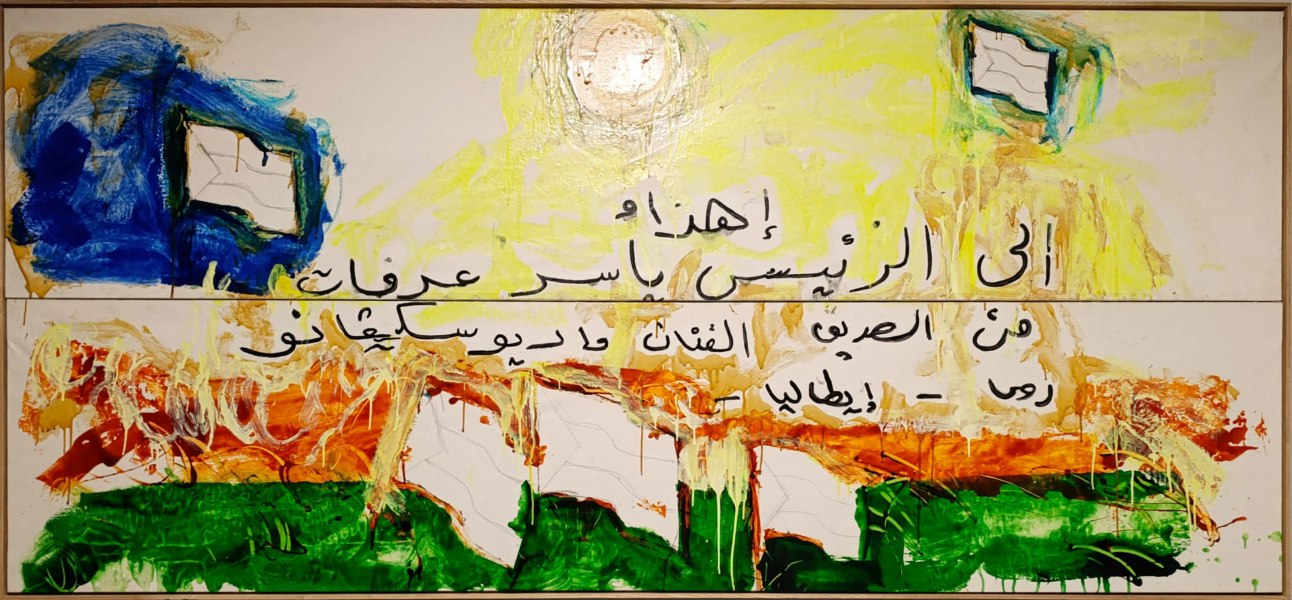 إهداء
الى الرئيس ياسر عرفات
من الصديق الفنان ماريو سكيڤانو
روما - إيطاليا -